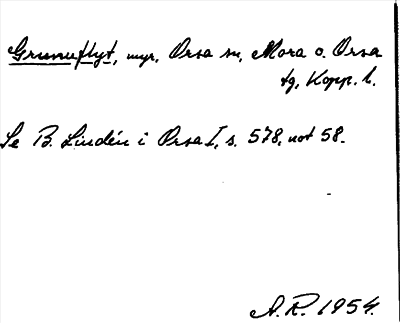 Grunuflyt, myr, Orsa sn, Mora o. Orsa
tg, Kopp. l.
Se B. Lindén i Orsa I, s. 578, not 58.
A. R. 1954.